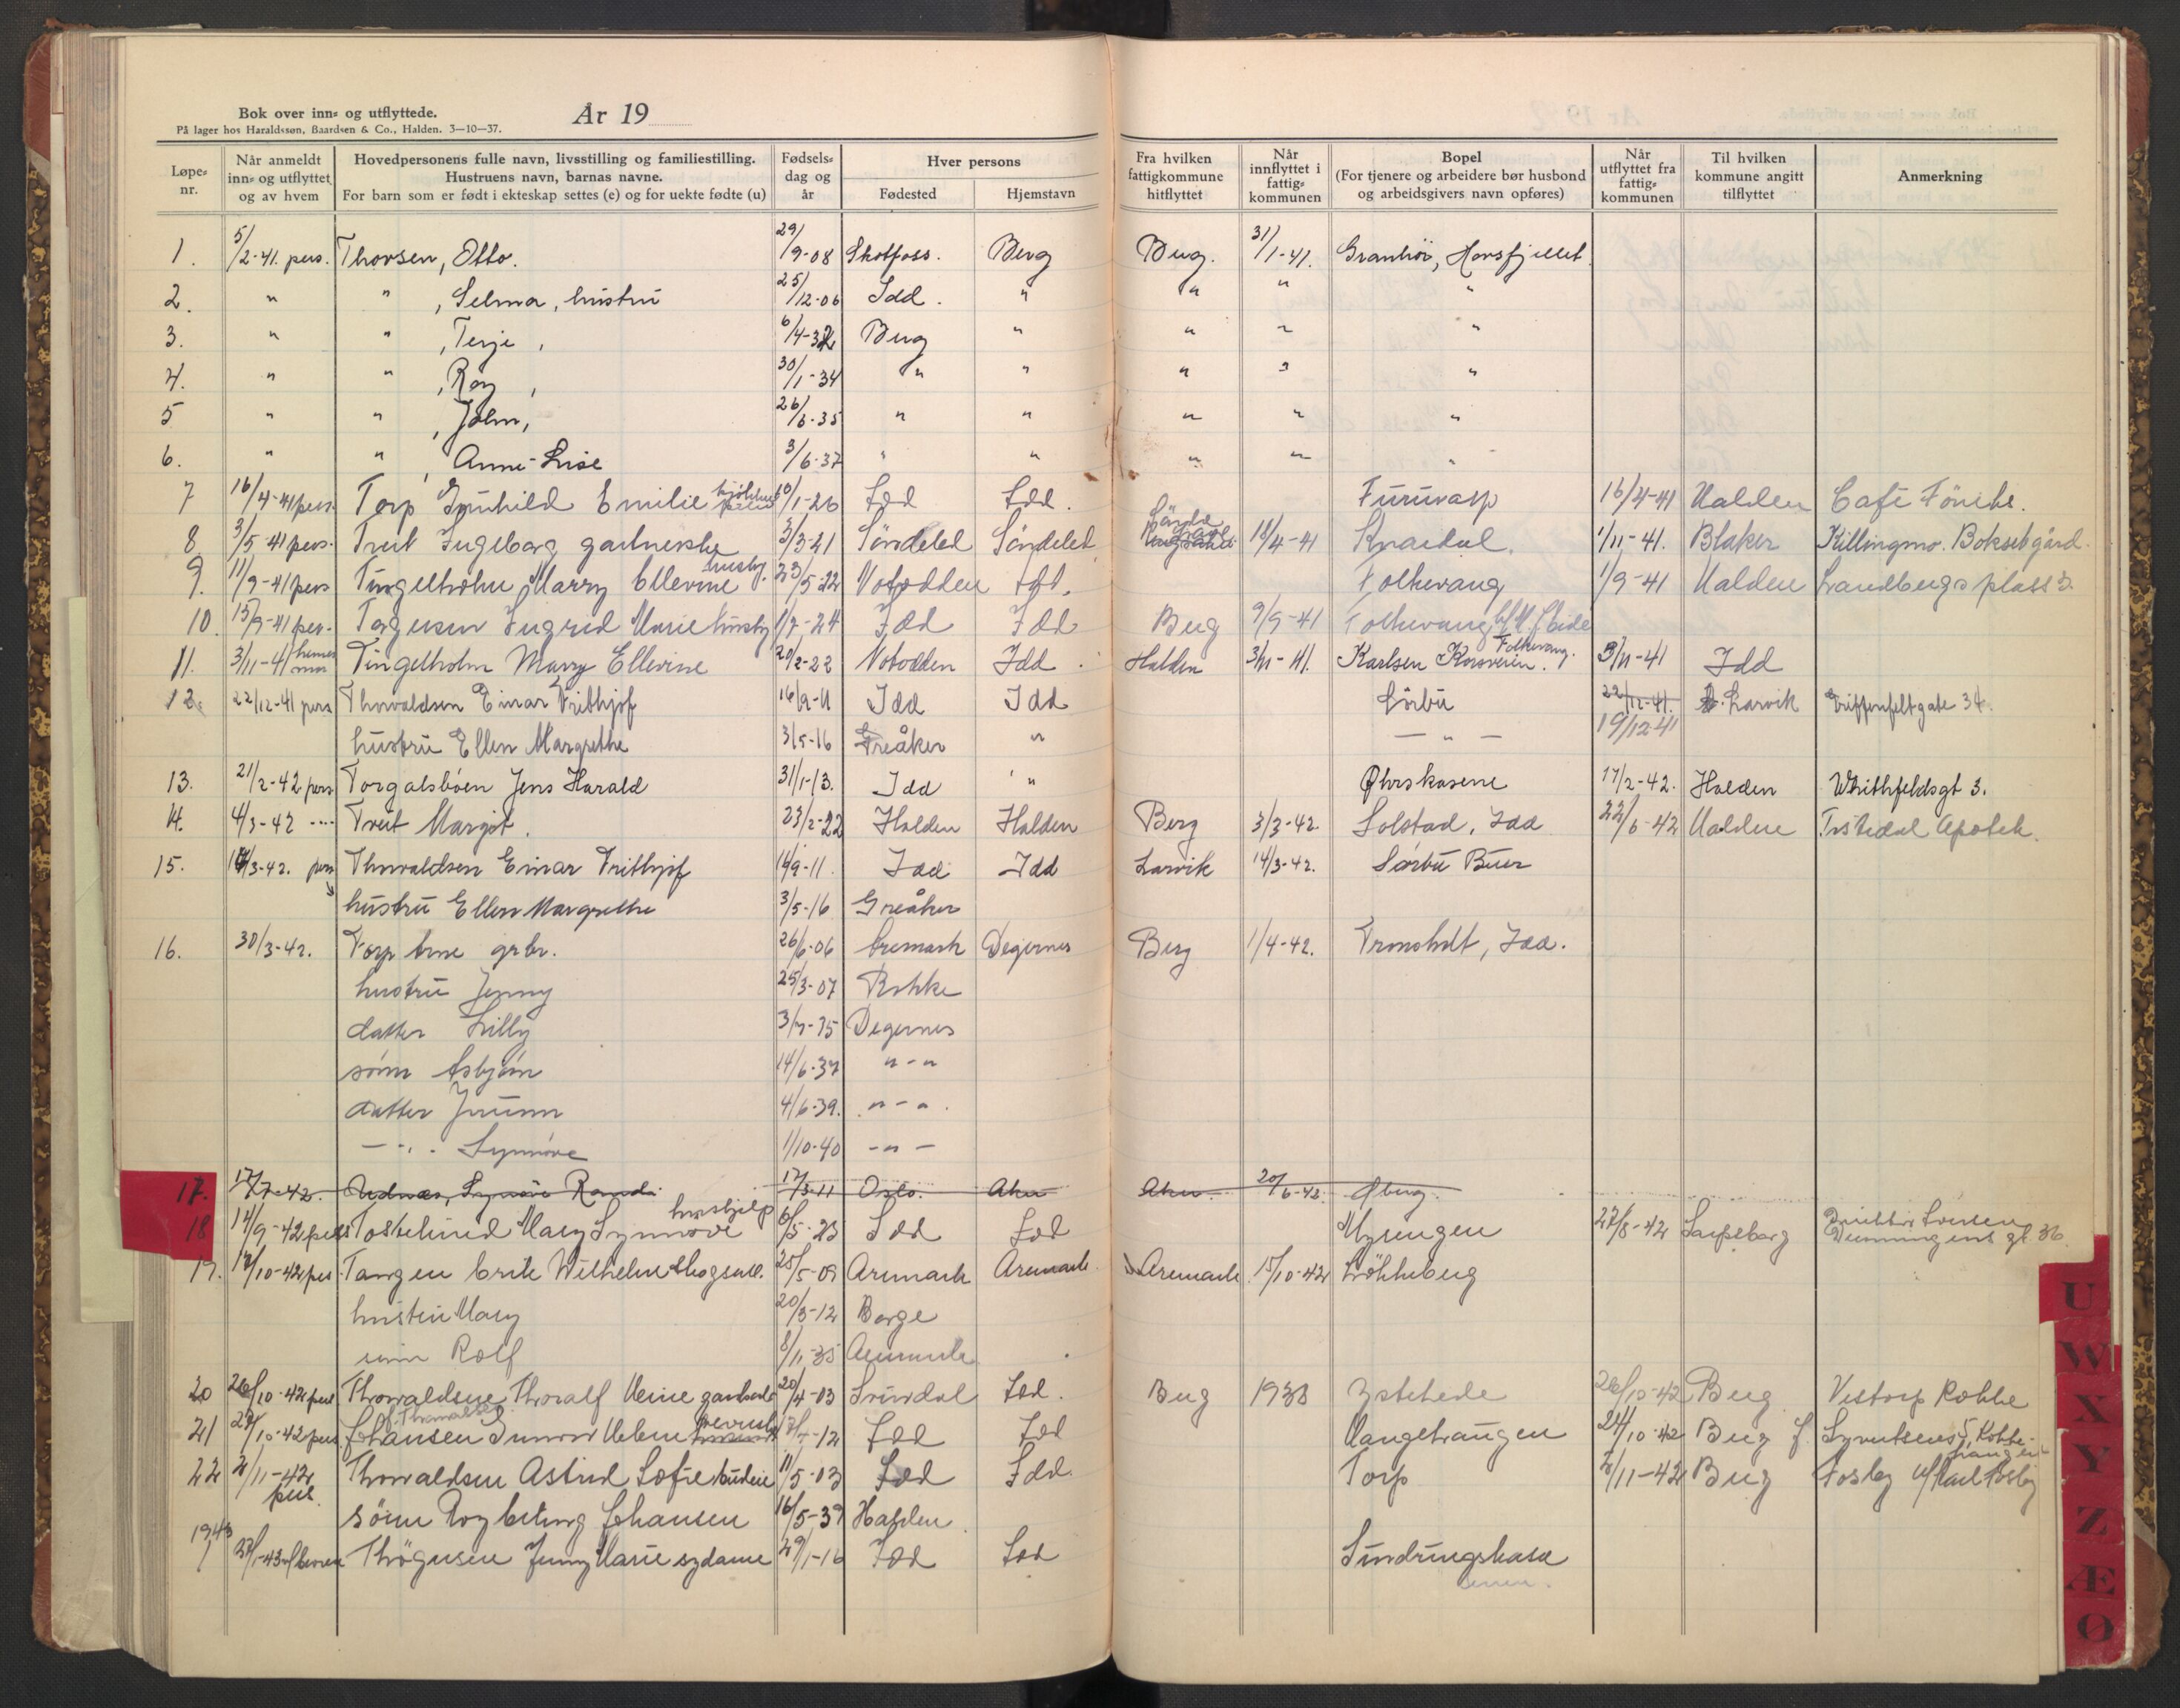 Bok over inn= og utflyttede.
På lager hos Haraldssøn, Baardsen & Co., Halden. 3—10—37.
År 19
Løpe= nr.
Når anmeldt inn= og utflyttet og av hvem
Hovedpersonens fulle navn, livsstilling og familiestilling. Hustruens navn, barnas navne. For barn som er født i ekteskap settes (e) og for uekte fødte (u)
Fødsels= dag og år
Hver persons
Fødested
Hjemstavn
Fra hvilken fattigkommune hitflyttet
Når innflyttet i fattig= kommunen
Bopel (For tjenere og arbeidere bør husbond og arbeidsgivers navn opføres)
Når utflyttet fra fattig= kommunen
Til hvilken kommune angitt tilflyttet
Anmerkning
1. 5/2-41. pers. Thorsen, Otto. 29/9-08 Skotfoss. Berg Berg. 31/1-41. Granhöi, Horsfjellet
2. " " , Selma, hustru 25/12-06 Idd. " " " "
3. " " , Terje, 6/4-32 Berg " " " "
4. " " , Roy, 30/1-34 " " " " "
5 " " , John, 26/6-35 " " " " "
6. " " , Anne-Lise 3/6-37 " " " " "
7 16/4-41 pers. Torp Gunhild Emilie 10/1-26 Idd Idd. Furuvarp 16/4-41 Halden Café Fönike.
8 3/5-41 pers. Treit Ingeborg gartnerske 3/3-21 Söndeled Söndeled 18/4-41 Knardal. 1/11-41. Blaker Killingmo. Boksetgård.
9. 11/9-41 pers Tingelholm Marry Ellevine husby. 23/5-22 Notodden Idd. Folkevang 1/9-41 Halden Landbergs plass 2.
10. 15/9-41 pers. Torgersen Ingrid Marie husby 1/7-24 Idd Idd Berg 9/9-41 Folkevang
11. 3/11-41 Tingelholm Marry Ellevine 20/2-22 Notodden Idd. Halden 3/11-41. Karlsen Korsveien. Folkevang. 3/11-41 Idd
12. 22/12-41 pers Thorvaldsen Einar Frithjof 16/9-11 Idd Idd Lörbu 22/12-41. Larvik Griffenfeltgate 34.
hustru Ellen Margrethe 3/5-16 Greåker " — " — 19/12-41
13. 21/2-42 pers Torgalsböen Jens Harald 31/1-13. Idd " Ørskasene 17/2-42. Halden Whithfeldsgt 3.
14. 4/3-42 ---- Treit Margit. 23/2-22 Halden Halden Berg 3/3-42. Solstad, Idd 22/6-42 Halden Tistedal Apotek.
15. 14/3-42. pers Thorvaldsen Einar Frithjof 16/9-11. Idd Idd Larvik 14/3-42. Sørbu Buer
hustru Ellen Margrethe 3/5-16 Greåker
16. 30/3-42. Torp Arne grbr. 26/6-06 Aremark Degernes Berg 1/4-42. Tronsholt, Idd.
hustru Jenny 25/3-07 Rokke
datter Lilly 3/7-35 Degernes
sönn Asbjörn 14/6-37 "-"
datter Jorunn 4/6-39. "-".
—"- Synnöve 1/10-40 -"-
17. 17/7-42. Synnöve Randi 17/3-11 Oslo. Aker Aker. 20/6-42. Øberg.
18 14/9-42 pers Tostelund Mary Synnöve hushjelp 6/5-23 Idd Idd Myrengen 27/8-42 Sarpsborg
19. 17/10-42 pers. Tangen Erik Wilhelm skogsarb. 25/5-09 Aremark Aremark. Aremark 15/10-42 Lökkeberg
hustru Mary 20/3-12 Borge
sönn Rolf 8/11-35 Aremark
20 26/10-42 pers Thorvaldsen Thoralf Meine gardsarb 20/4-03 Idd. Berg 1938 Ystehede 26/10-42 Berg Vestorp Rokke
21 27/10-42 pers Johansen f. Thorvaldsen Gunvor Helene 12 Idd Idd Hangehaugen 24/10-42 Berg
22 2/11-42 pers. Thorvaldsen Astrid Sofie budeie 11/5-03 Idd Idd. Torp 2/11-42 Berg Fosby v/Karl Fosby
sönn Roy Johansen 16/5-39 Halden.
1943
1 Thögersen Jenny Marie sydame 29/1-16 Idd Idd
U
W
X
Y
Z
Æ
Ø